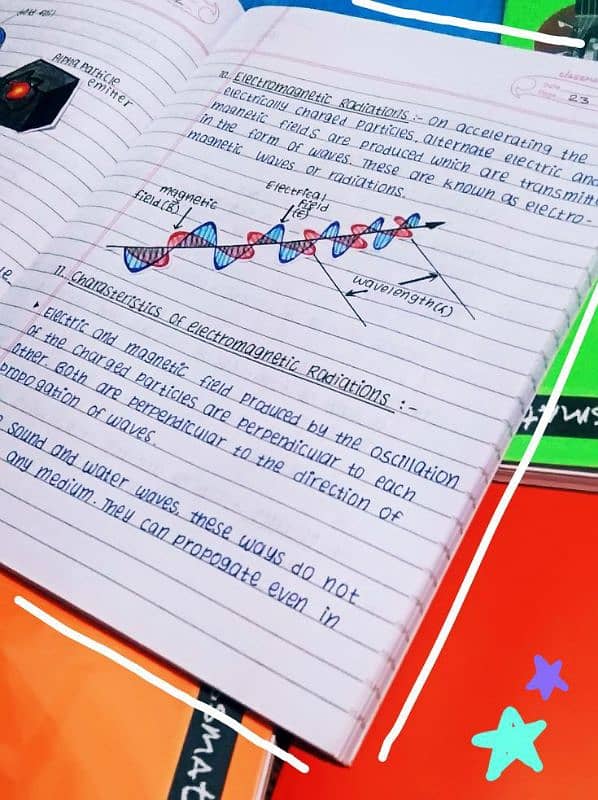 Alpha Particle
emitter
classmate
Date
Page 23
10. Electromagnetic Radiations :- On accelerating the
electrically charged particles, alternate electric and
magnetic fields are produced which are transmitt
in the form of waves. These are known as electro-
magnetic waves or radiations.
magnetic
field (B)
Electrical
Field
(E)
wavelength(λ)
11. Charasteristics of electromagnetic Radiations :-
Electric and magnetic field produced by the oscillation
of the charged particles are perpendicular to each
other. Both are perpendicular to the direction of
propogation of waves.
sound and water waves, these ways do not
any medium. They can propogate even in